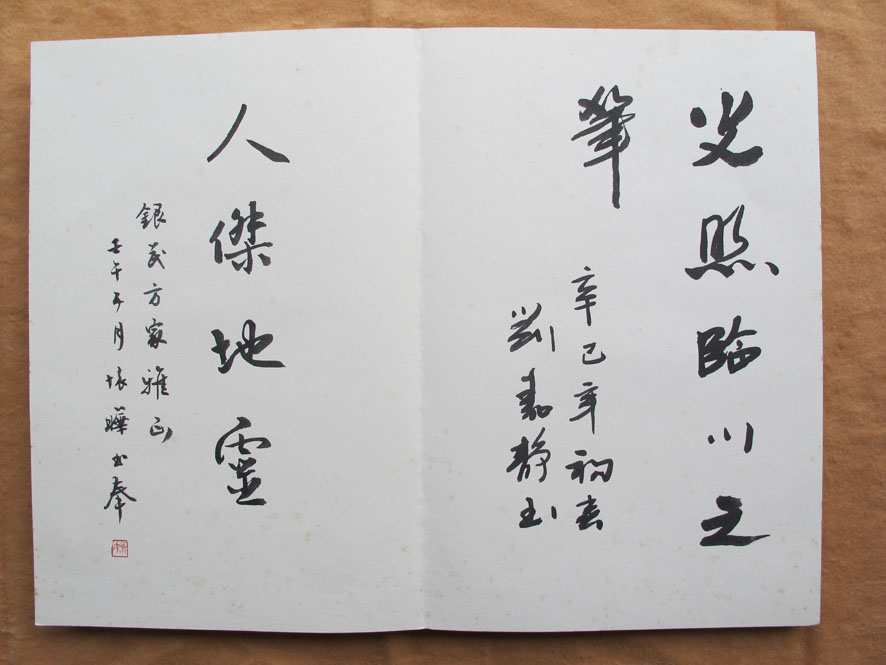 光照臨川之
筆
辛巳年初春
劉静书
人傑地靈
銀茂方家雅正
壬午月曄书奉